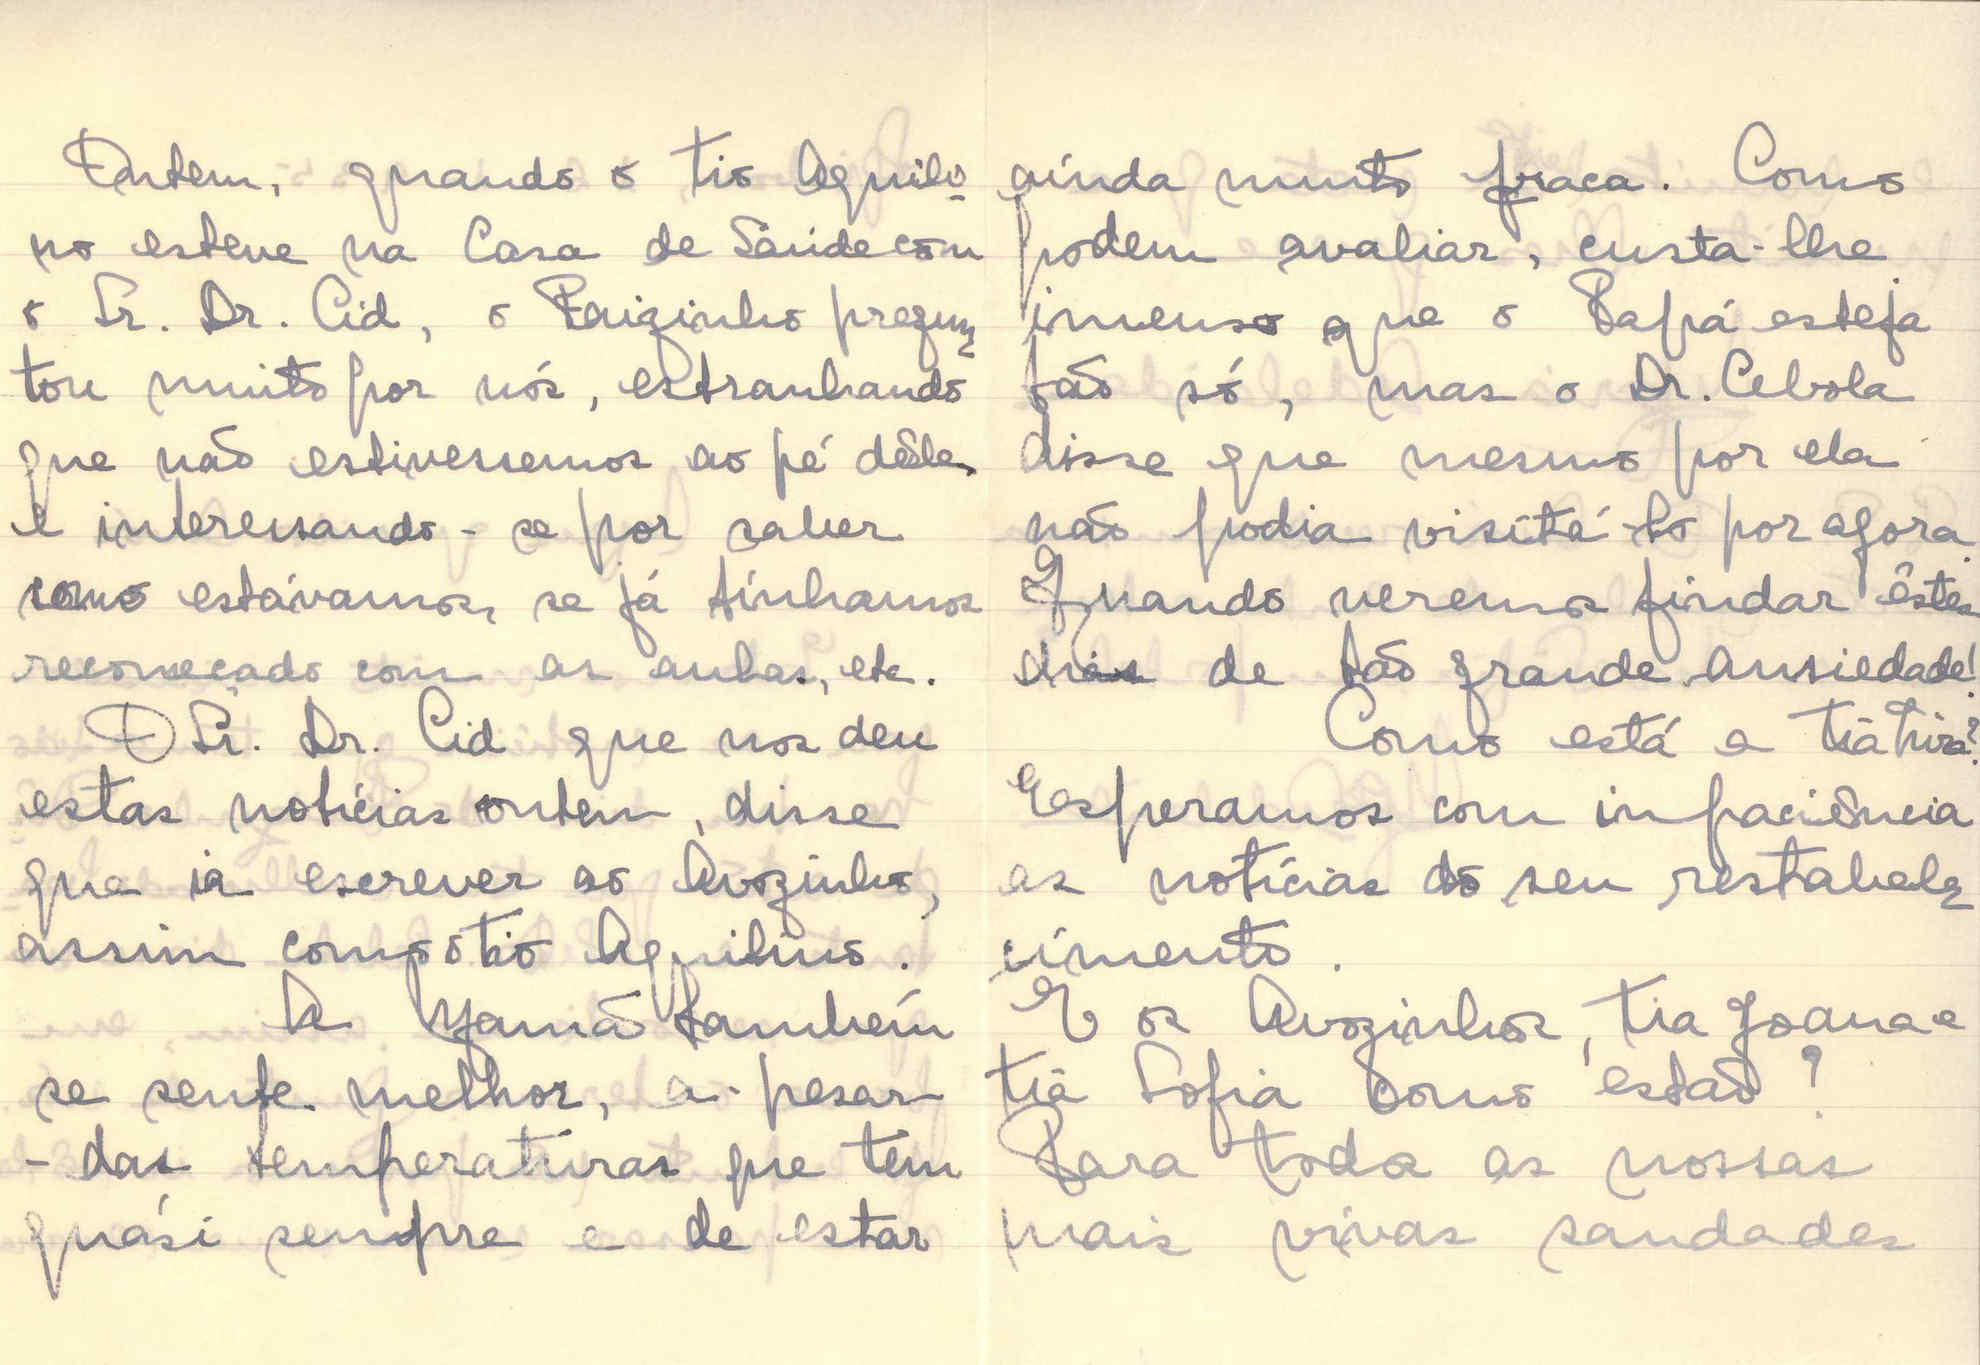 Ontem, quando o tio Aquili-
no esteve na Casa de Saúde com
o Sr. Dr. Cid, o Paizinho pregun
tou muito por nós, estranhando
que não estivessemos ao pé dêle,
e interessando-se por saber
como estávamos, se já tínhamos
recomeçado com as aulas, etc.
O Sr. Dr. Cid que nos deu
estas notícias ontem, disse
que ia escrever ao Avozinho,
assim como o tio Aquilino.
A Mamã também
se sente melhor, a-pesar-
-das temperaturas que tem
quási sempre e de estar
ainda muito fraca. Como
podem avaliar, custa-lhe
imenso que o Papá esteja
tão só, mas o Dr. Cebola
disse que mesmo por ela
não podia visitá-lo por agora.
Quando veremos findar êstes
dias de tão grande ansiedade!
Como está a tia ?
Esperamos com impaciência
as notícias do seu restabele
cimento.
E os Avozinhos, tia Joana e
tia Sofia como estão?
Para todos as nossas
mais vivas saudades